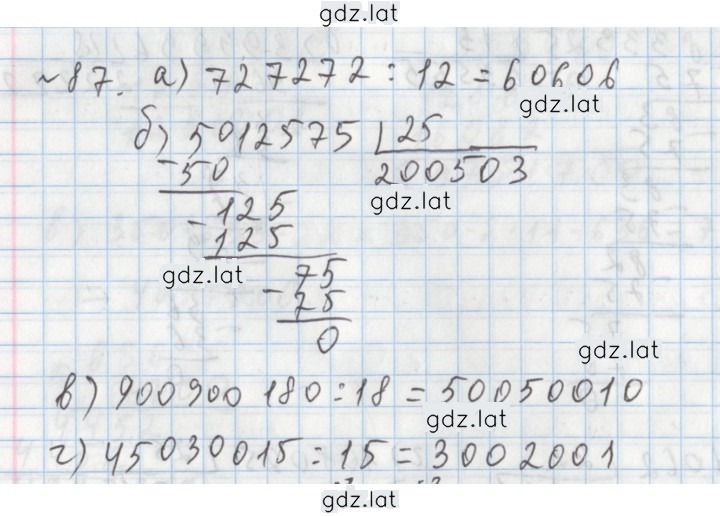 gdz.lat
№87. а) 727272 : 12 = 60606
gdz.lat
б) 5012575 | 25
- 50 200503
gdz.lat
- 125
125
gdz.lat
- 75
75
0
gdz.lat
в) 900900180 : 18 = 50050010
gdz.lat
г) 45030015 : 15 = 3002001
gdz.lat